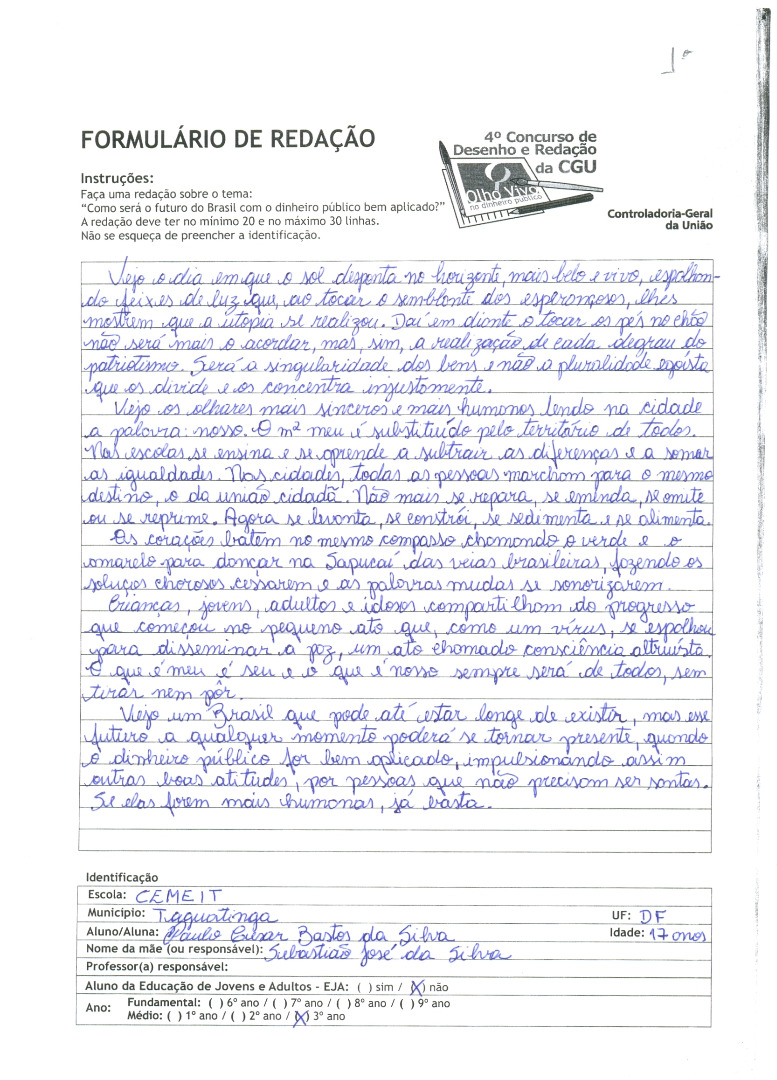 1º
FORMULÁRIO DE REDAÇÃO
4º Concurso de
Desenho e Redação
da CGU
Olho Vivo
no dinheiro público
Controladoria-Geral
da União
Instruções:
Faça uma redação sobre o tema:
“Como será o futuro do Brasil com o dinheiro público bem aplicado?”
A redação deve ter no mínimo 20 e no máximo 30 linhas.
Não se esqueça de preencher a identificação.
Vejo o dia em que o sol desponta no horizonte, mais belo e vivo, espalhan-
do feixes de luz que, ao tocar o semblante dos esperançosos, lhes
mostrem que a utopia se realizou. Daí em diante o tocar os pés no chão
não será mais o acordar, mas, sim, a realização de cada degrau do
patriotismo. Será a singularidade dos bens e não a pluralidade egoísta
que os divide e os concentra injustamente.
Vejo os olhares mais sinceros e mais humanos lendo na cidade
a palavra: nosso. O m² meu é substituído pelo território de todos.
Nas escolas se ensina e se aprende a subtrair as diferenças e a somar
as igualdades. Nas cidades, todas as pessoas marcham para o mesmo
destino, o da união cidadã. Não mais se repara, se eminda, se omite
ou se reprime. Agora se levanta, se constrói, se sedimenta e se alimenta.
Os corações batem no mesmo compasso chamando o verde e o
amarelo para dançar na Sapucaí das veias brasileiras, fazendo os
soluços chorosos cessarem e as palavras mudas se sonorizarem.
Crianças, jovens, adultos e idosos compartilham do progresso
que começou no pequeno ato que, como um vírus, se espalhou
para disseminar a paz, um ato chamado consciência altruísta.
O que é meu é seu e o que é nosso sempre será de todos, sem
tirar nem pôr.
Vejo um Brasil que pode até estar longe de existir, mas esse
futuro a qualquer momento poderá se tornar presente, quando
o dinheiro público for bem aplicado, impulsionando assim
outras boas atitudes, por pessoas que não precisam ser santas.
Se elas forem mais humanas, já basta.
Identificação
Escola: CEMEIT
Município: Taguatinga UF: DF
Aluno/Aluna: Paulo César Bastos da Silva Idade: 17 anos
Nome da mãe (ou responsável): Sebastião José da Silva
Professor(a) responsável:
Aluno da Educação de Jovens e Adultos - EJA: ( ) sim / (X) não
Ano: Fundamental: ( ) 6º ano / ( ) 7º ano / ( ) 8º ano / ( ) 9º ano
Médio: ( ) 1º ano / ( ) 2º ano / (X) 3º ano